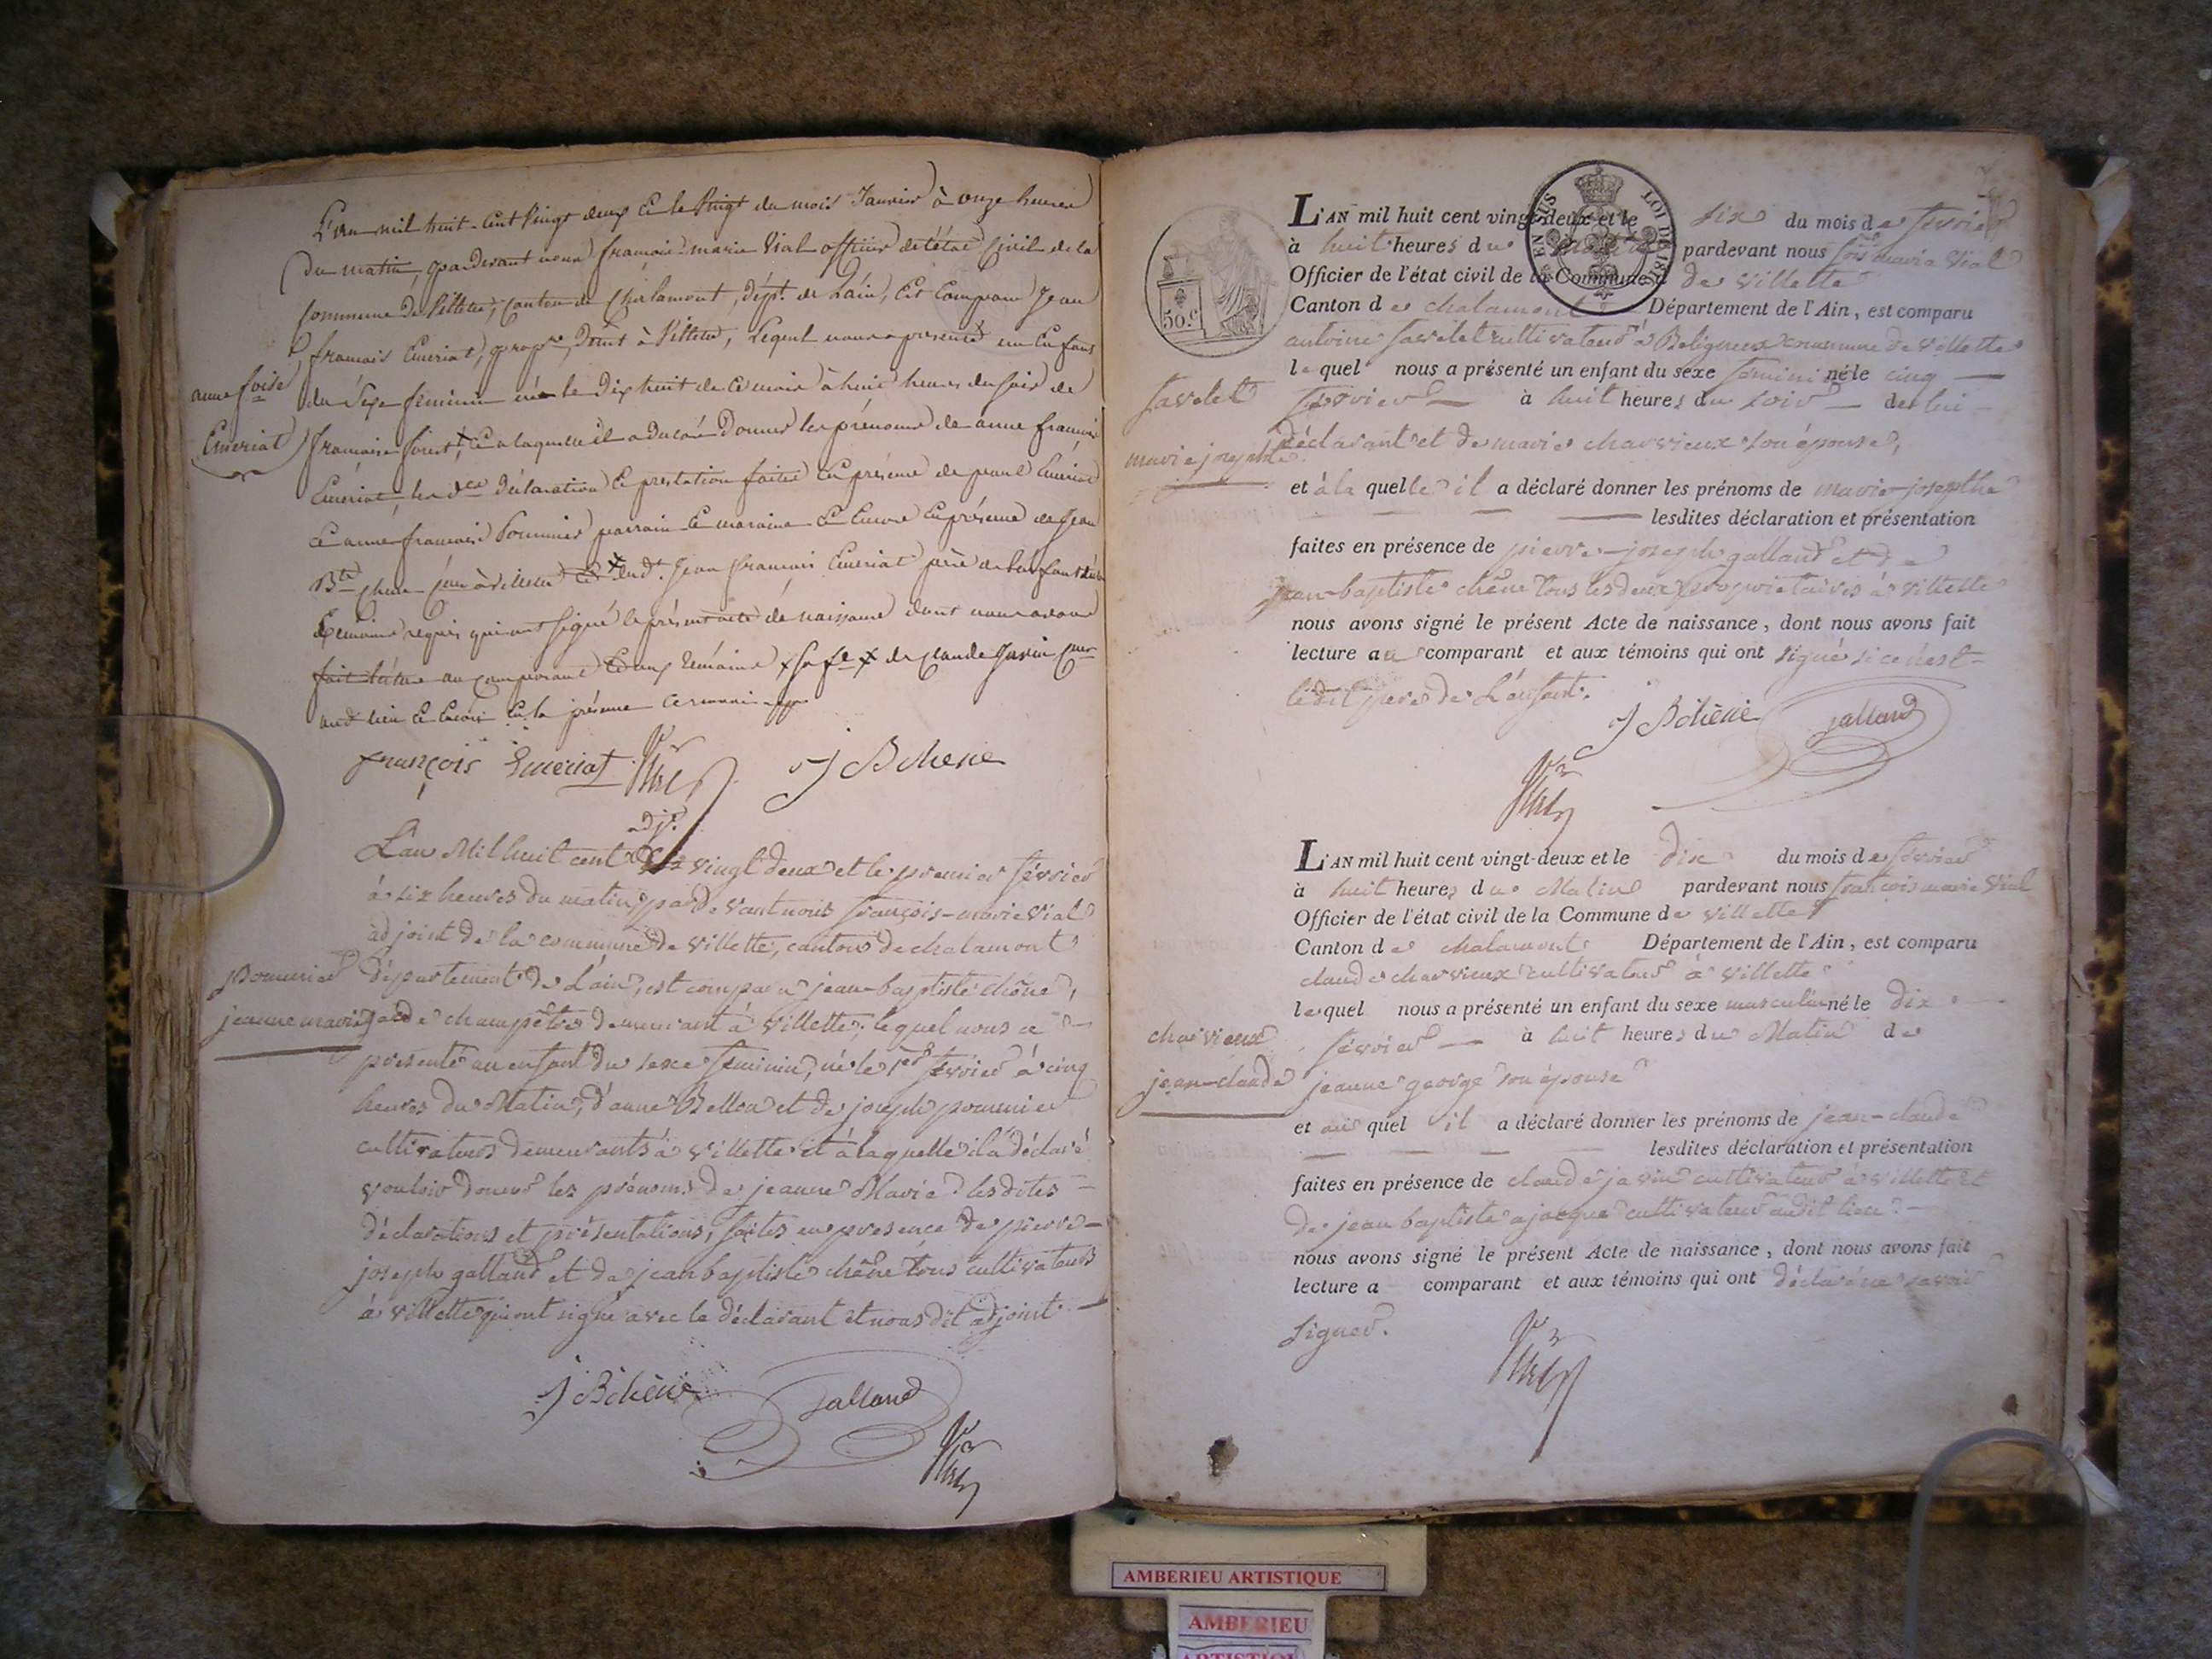 L'an mil huit cent vingt deux & le vingt du mois Janvier à onze heures
du matin, pardevant nous françois-marie Vial officier de l'état Civil de la
commune de Villette, canton de Chalamont, dépt. de L'ain, est comparu Jean
françois Emeriat, à Villette, Lequel nous a presenté un Enfant
anne foise
du Sexe feminin née le dix huit de ce mois à huit heures du soir de
Emeriat
françoise & a laquelle il a declaré Donner les prénoms de anne françoise
Emeriat, les dtes déclaration & prestation faites En présence de Emeriat
& anne françoise Pommier parrain & maraine & Encore En présence de Jean
Bte chene à Villette & dudt. Jean françois Emeriat père de l'enfant
témoins requis qui ont signé le présent acte de naissance dont nous avons
fait lecture au comparant & aux témoins de claude Javin
audt lieu & Encore En la présence
françois Emeriat Vial J B chene
adjt.
L'an Mil huit cent vingt deux et le premier février
à six heures du matin, par devant nous françois-marie Vial
adjoint de la commune de Villette, canton de chalamont
Pommier
département de L'ain, est comparu jean-baptiste chêne,
jeanne marie
garde champêtre demeurant à Villette; lequel nous a
présenté un enfant du sexe feminin, né le 1er février à cinq
heures du Matin, d'anne Bellon et de joseph pommier
cultivateurs demeurants à villette et à laquelle il a déclaré
vouloir donner les prénoms de jeanne Marie lesdites
déclarations et présentations, faites en presence de pierre-
joseph galland et de jean baptiste chêne tous cultivateurs
à villette qui ont signé avec le déclarant et nous dit adjoint.
J B chêne Galland Vial
BENSUS LOI DE 181
50.c
L'AN mil huit cent vingt-deux et le six du mois de fevrier
à huit heures du pardevant nous fois marie Vial
Officier de l'état civil de la Commune de Villette
Canton de chalamont Département de l'Ain, est comparu
antoine favelet cultivateur à Beligneux commune de villette
lequel nous a présenté un enfant du sexe feminin né le cinq
favelet
février à huit heures du soir de lui
marie josephte
déclarant et de marie charvieux son épouse,
et à la quelle il a déclaré donner les prénoms de marie-josephte
lesdites déclaration et présentation
faites en présence de pierre-joseph galland et de
jean-baptiste chêne tous les deux proprietaires à villette
nous avons signé le présent Acte de naissance, dont nous avons fait
lecture au comparant et aux témoins qui ont signé si ce n'est
ledit pere de L'enfant.
J B chêne Galland
Vial
L'AN mil huit cent vingt-deux et le dix du mois de février
à huit heures du Matin pardevant nous françois marie Vial
Officier de l'état civil de la Commune de villette
Canton de chalamont Département de l'Ain, est comparu
claude charvieux cultivateur à villette
lequel nous a présenté un enfant du sexe masculin né le dix
charvieux
février à huit heures du Matin de
jean-claude
jeanne george son épouse
et au quel il a déclaré donner les prénoms de jean-claude
lesdites déclaration et présentation
faites en présence de claude javin cultivateur à villette et
de jean baptiste ajacque cultivateur audit lieu.
nous avons signé le présent Acte de naissance, dont nous avons fait
lecture a comparant et aux témoins qui ont déclaré ne savoir
signer.
Vial
AMBERIEU ARTISTIQUE
AMBERIEU
ARTISTIQU